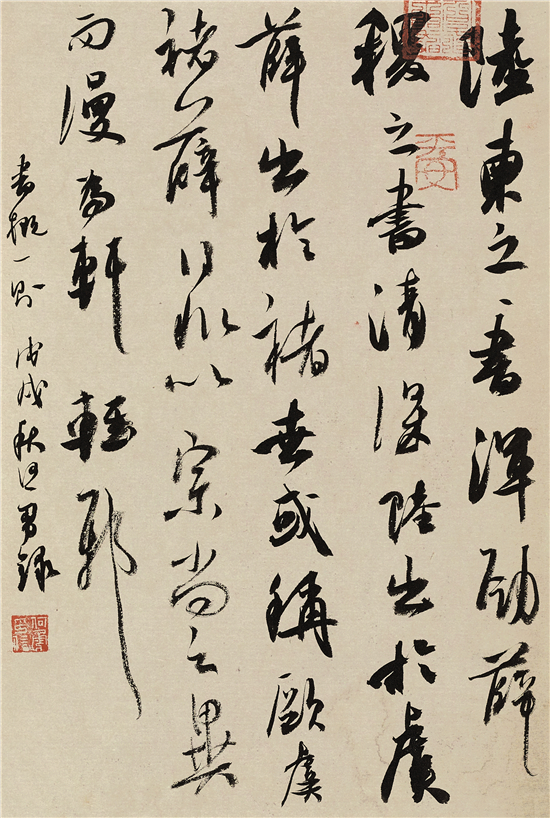 陸柬之〻書渾勁薛
稷之書清深陸出於虞
薛出於褚世或稱歐虞
褚薛得非以宗尚之異
而漫為軒輊耶
書概一則 戊戌秋何勇錄